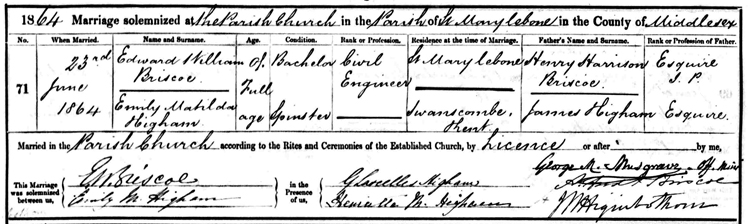 1864 Marriage solemnized at the Parish Church in the Parish of St Marylebone in the County of Middlesex
No. When Married. Name and Surname. Age. Condition. Rank or Profession. Residence at the time of Marriage. Father's Name and Surname. Rank or Profession of Father.
71 23rd June 1864 Edward William Briscoe Of Full age Bachelor Civil Engineer St Marylebone Henry Harrison Briscoe Esquire J.P.
Emily Matilda Higham Spinster Swanscombe, Kent James Higham Esquire.
Married in the Parish Church according to the Rites and Ceremonies of the Established Church, by Licence or after by me,
George M. Musgrave Off. Minr
This Marriage was solemnized between us, E W Briscoe in the Presence of us, G Lascelles Higham Briscoe
Emily M Higham Henrietta M. Higham J W Higinbothom